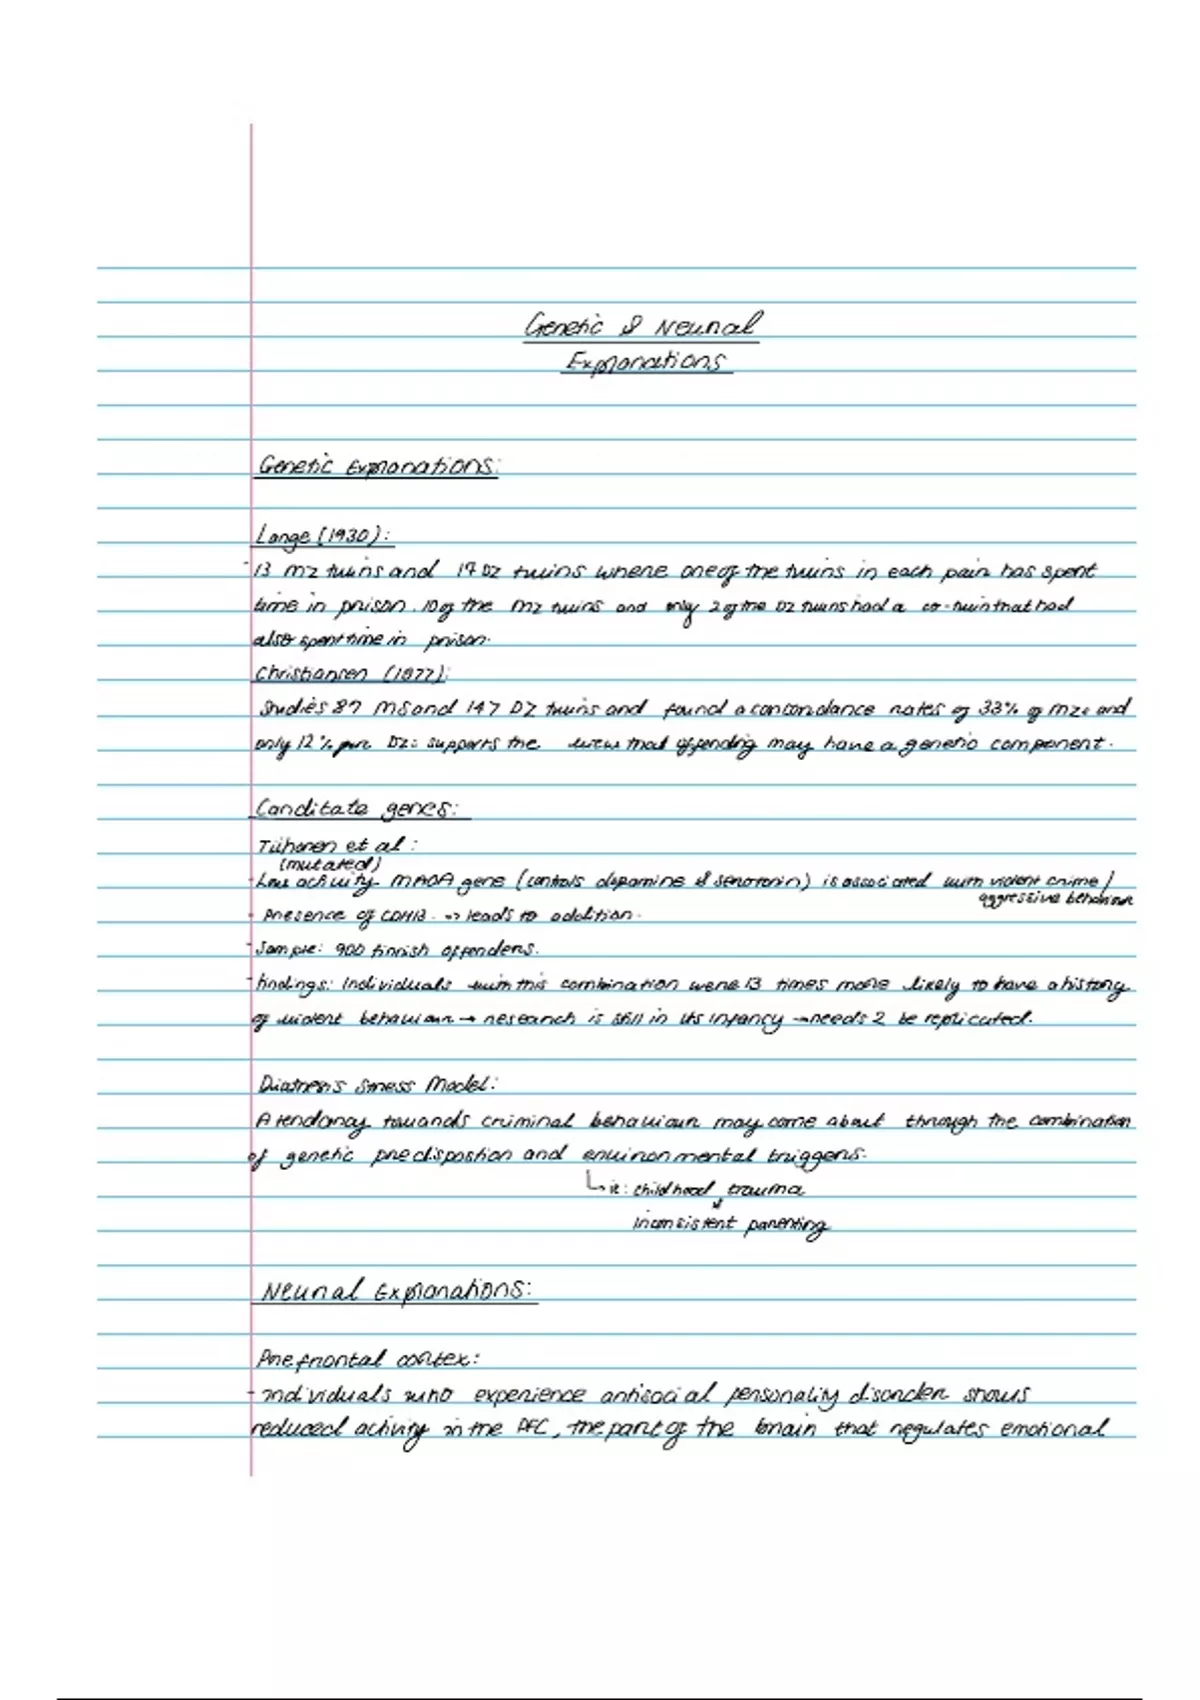 Genetic & Neural
Explanations
Genetic Explanations:
Lange (1930):
- 13 MZ twins and 17 DZ twins where one of the twins in each pair has spent
time in prison. 10 of the MZ twins and only 2 of the DZ twins had a co-twin that had
also spent time in prison.
Christiansen (1977):
Studies 87 MS and 147 DZ twins and found a concordance rates of 33% of MZs and
only 12% for DZs supports the view that offending may have a genetic component.
Canditate genes:
Tiihonen et al:
(mutated)
- Low activity MAOA gene (controls dopamine & serotonin) is associated with violent crime/
aggressive behaviour
- Presence of CDH13 → leads to addition.
- Sample: 900 finnish offenders.
- findings: Individuals with this combination were 13 times more likely to have a history
of violent behaviour → research is still in its infancy → needs 2 be replicated.
Diathesis Stress Model:
A tendancy towards criminal behaviour may come about through the combination
of genetic predispostion and environmental triggers.
ie: childhood trauma
inconsistent parenting
Neural Explanations:
Prefrontal cortex:
- Individuals who experience antisocial personality disorder shows
reduced activity in the PFC, the part of the brain that regulates emotional